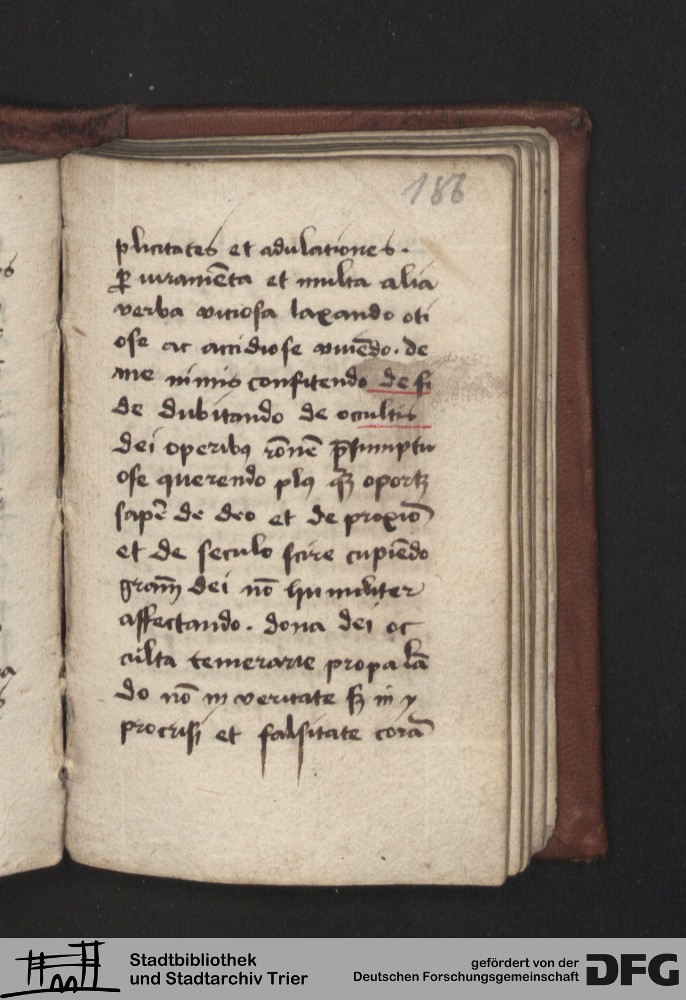 186
plicitates et adulationes.
ꝑ iuramēta et multa alia
verba viciosa laxando oti
ose ac accidiose viuēdo. de
me nimis confitendo de fi
de dubitando de occultis
dei operibꝰ rōnē p̄sumptu
ose querendo plꝰ qꝫ oportꝫ
saꝑe de deo et de proxiō
et de seculo scire cupiēdo
gram̄ dei nō humiliter
affectando. dona dei oc
culta temerarie propalā
do nō in veritate sꝫ in y
procrisi et falsitate corā
Stadtbibliothek
und Stadtarchiv Trier
gefördert von der
Deutschen Forschungsgemeinschaft
DFG